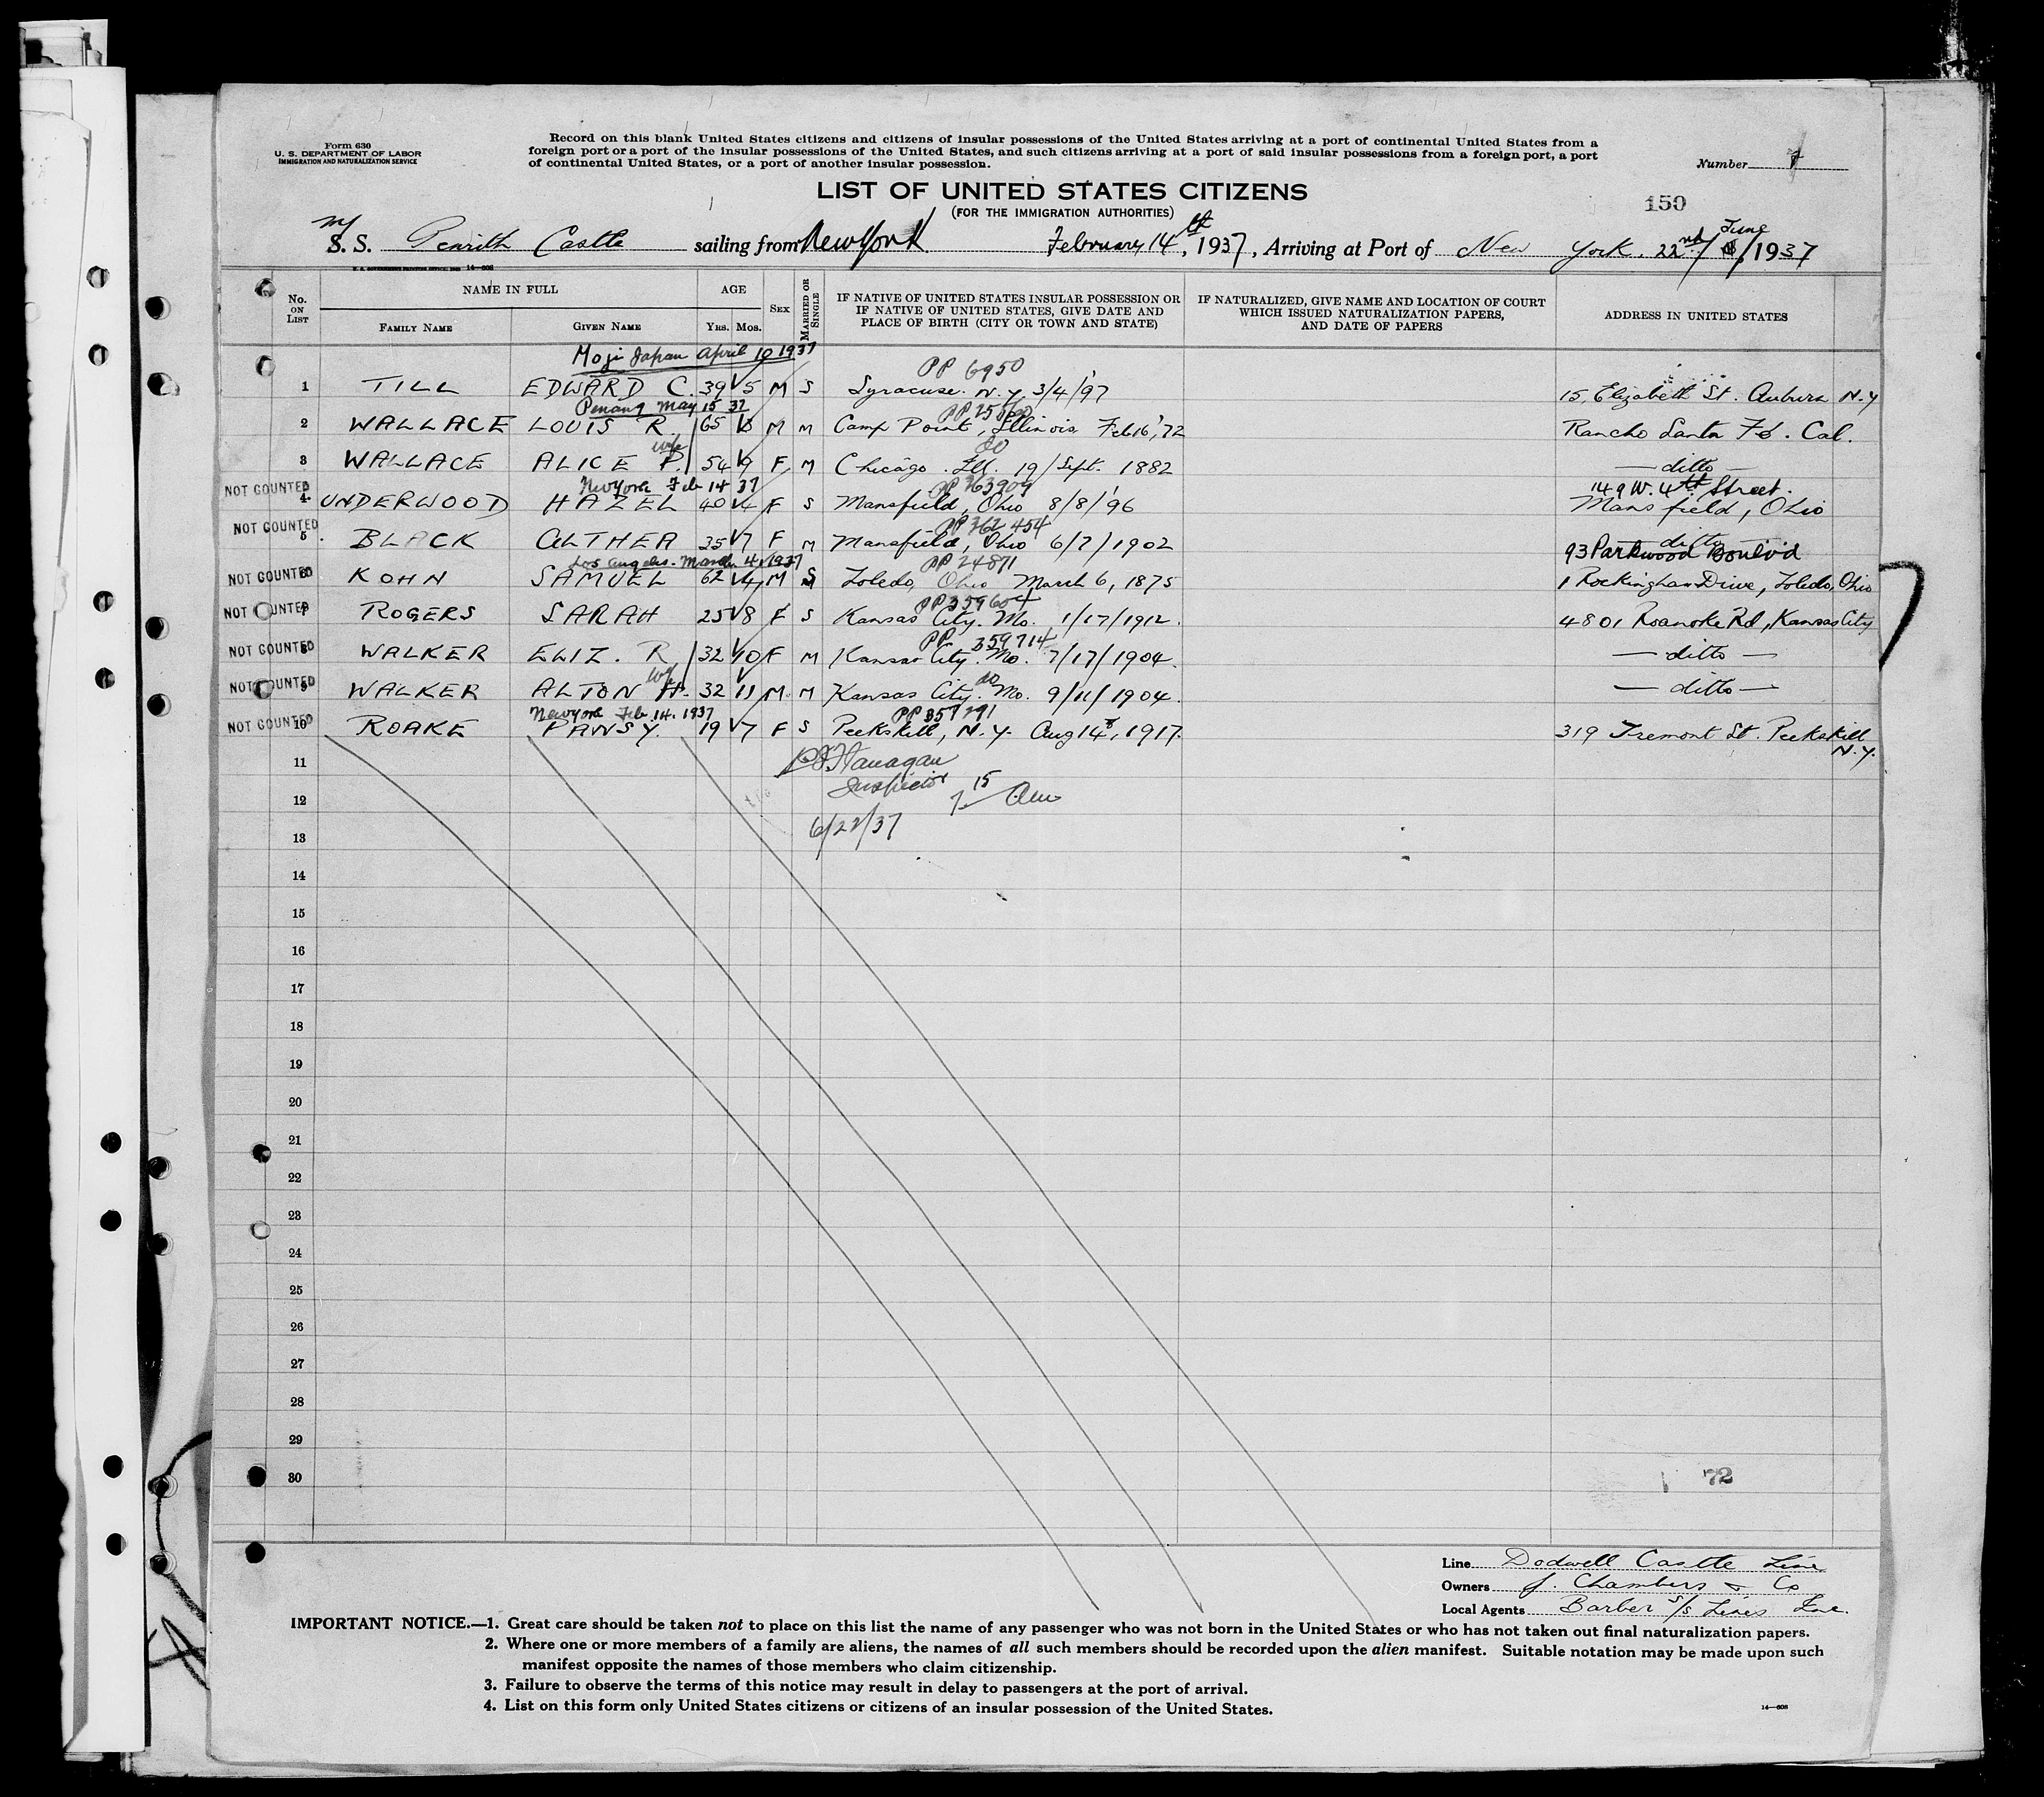 Form 630
U. S. DEPARTMENT OF LABOR
IMMIGRATION AND NATURALIZATION SERVICE
Record on this blank United States citizens and citizens of insular possessions of the United States arriving at a port of continental United States from a
foreign port or a port of the insular possessions of the United States, and such citizens arriving at a port of said insular possessions from a foreign port, a port
of continental United States, or a port of another insular possession.
Number
LIST OF UNITED STATES CITIZENS
(FOR THE IMMIGRATION AUTHORITIES)
150
M/
S. S. Penrith Castle sailing from New York February 14th, 1937, Arriving at Port of New York, 22nd/ June/1937
No. ON LIST
NAME IN FULL
FAMILY NAME
GIVEN NAME
AGE
YRS. MOS.
SEX
MARRIED OR SINGLE
IF NATIVE OF UNITED STATES INSULAR POSSESSION OR
IF NATIVE OF UNITED STATES, GIVE DATE AND
PLACE OF BIRTH (CITY OR TOWN AND STATE)
IF NATURALIZED, GIVE NAME AND LOCATION OF COURT
WHICH ISSUED NATURALIZATION PAPERS,
AND DATE OF PAPERS
ADDRESS IN UNITED STATES
Moji Japan April 10 1937
PP 6950
1 TILL EDWARD C. 39 5 M S Syracuse. N.Y. 3/4/'97 15, Elizabeth St. Auburn N.Y
Penang May 15 37
2 WALLACE LOUIS R. 65 M M Camp Point, Illinois Feb 16,'72 Rancho Santa Fé. Cal.
wife do
3 WALLACE ALICE P. 54 9 F M Chicago. Ill. 19/Sept. 1882 — ditto —
New York Feb 14 37 PP 363909 149 W. 4th Street.
NOT COUNTED 4 UNDERWOOD HAZEL 40 4 F S Mansfield, Ohio 8/8/'96 Mansfield, Ohio
PP 362454
NOT COUNTED 5 BLACK ALTHEA 35 7 F M Mansfield, Ohio 6/7/1902 — ditto —
Los Angeles. March 4, 1937 PP 24871 93 Parkwood Boulvd
NOT COUNTED 6 KOHN SAMUEL 62 4 M S Toledo, Ohio March 6, 1875 1 Rockingham Drive, Toledo, Ohio
PP 359604
NOT COUNTED 7 ROGERS SARAH 25 8 F S Kansas City. Mo. 1/17/1912. 4801 Roanoke Rd, Kansas City
PP 359714
NOT COUNTED 8 WALKER ELIZ. R 32 10 F M Kansas City. Mo. 7/17/1904. — ditto —
wf do
NOT COUNTED 9 WALKER ALTON H. 32 11 M M Kansas City. Mo. 9/11/1904. — ditto —
New York Feb 14. 1937 PP 357291
NOT COUNTED 10 ROAKE PANSY. 19 7 F S Peekskill, N.Y. Aug 14th, 1917. 319 Tremont St. Peekskill
N.Y.
11 Flanagan
Inspector
12 15
6/22/37
13
14
15
16
17
18
19
20
21
22
23
24
25
26
27
28
29
30
72
Line Dodwell Castle Line
Owners J. Chambers & Co
Local Agents Barber S/S Lines Inc.
IMPORTANT NOTICE.—1. Great care should be taken not to place on this list the name of any passenger who was not born in the United States or who has not taken out final naturalization papers.
2. Where one or more members of a family are aliens, the names of all such members should be recorded upon the alien manifest. Suitable notation may be made upon such
manifest opposite the names of those members who claim citizenship.
3. Failure to observe the terms of this notice may result in delay to passengers at the port of arrival.
4. List on this form only United States citizens or citizens of an insular possession of the United States.